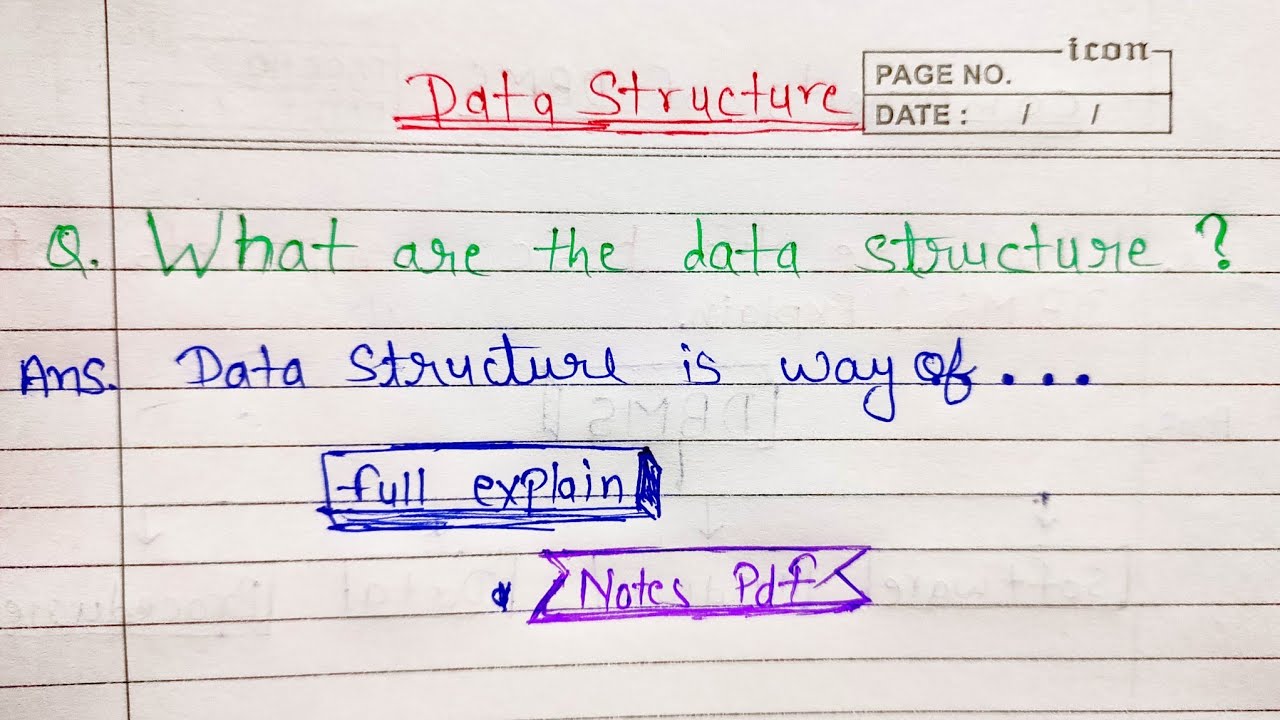 icon
Data Structure
PAGE NO.
DATE : / /
Q. What are the data structure ?
Ans. Data Structure is way of ...
full explain
Notes Pdf